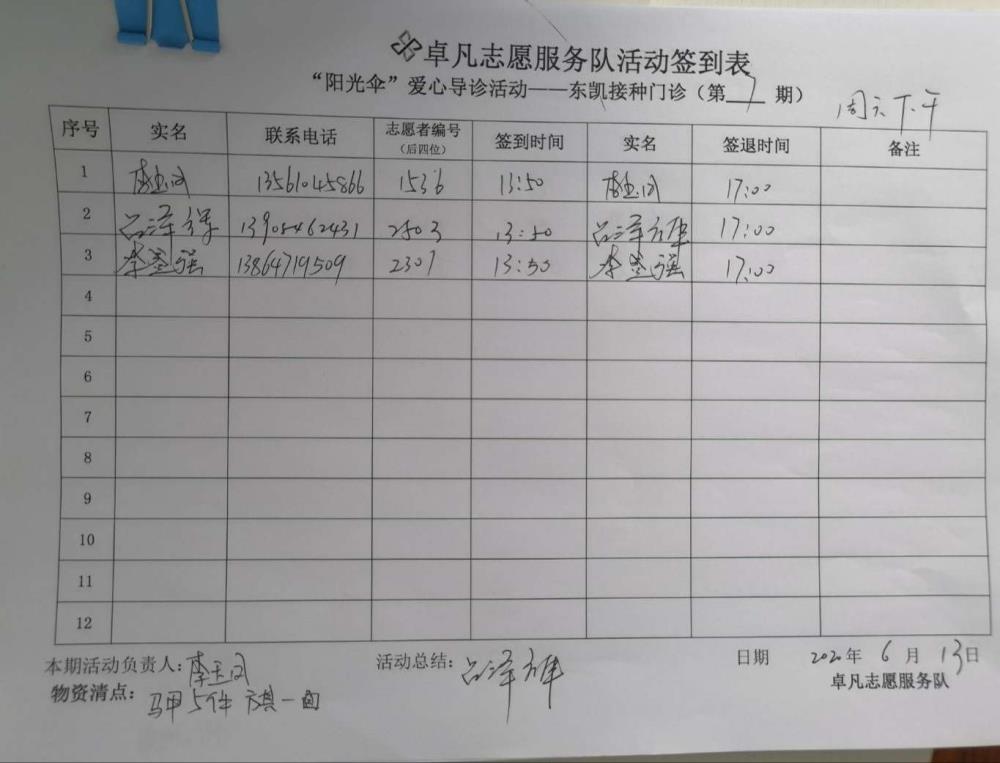 卓凡志愿服务队活动签到表
“阳光伞”爱心导诊活动——东凯接种门诊（第 7 期）
周六下午
序号 实名 联系电话 志愿者编号（后四位） 签到时间 实名 签退时间 备注
1 李玉凤 13561045866 1536 13:50 李玉凤 17:00
2 吕泽雄 13905462431 2503 13:50 吕泽雄 17:00
3 李 强 13864719509 2307 13:50 李 强 17:00
4
5
6
7
8
9
10
11
12
本期活动负责人：李玉凤 活动总结：吕泽雄 日期 2020年 6 月 13日
物资清点：马甲5件 旗一面 卓凡志愿服务队